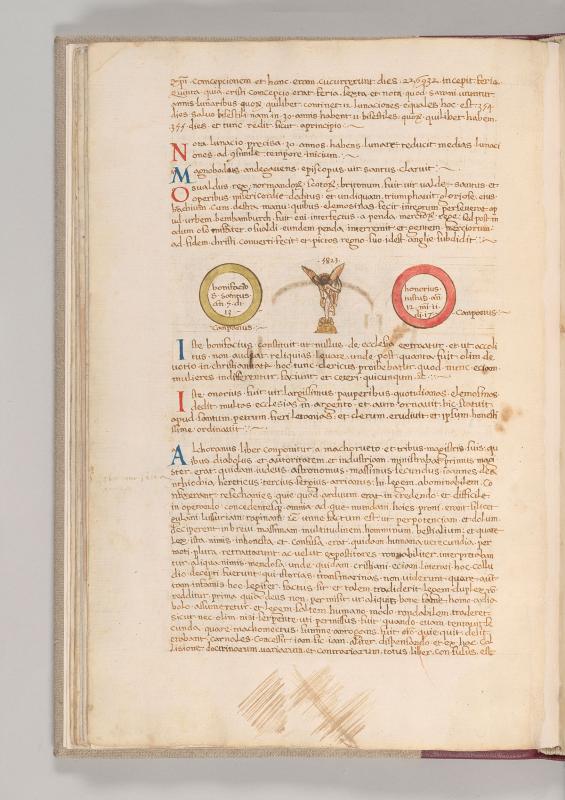 xpi concepcionem et hanc eram cucurrerunt dies 226932 incepit feria
quinta quia cristi concepcio erat feria sexta et nota quod sarraceni utuntur
annis lunaribus quilibet continet 12 lunaciones equales hoc est 354
dies salvo bisestili nam in 30 annos habent 11 bisestiles quilibet habent
355 dies et tunc redit sicut a principio
Nota lunacio precisa 30 annos habens lunare reducit medias lunaci
ones ad consimile tempore inicium
Magnobodus andegavens episcopus vir santus claruit
Osvaldus rex normandor scotor britonum fuit vir valde santus et
operibus misericordie deditus et undiquam triumphavit gloriose eius
brachium cum destra manu quibus elemosinas fecit integrum perseverat ap
ud urbem bemhamburch fuit enim interfectus a penda merciorum rege sed post m
odum osvi frater osvaldi eundem penda interremit et gentem merciorum
ad fidem christi converti fecit et pictos regno suo idest anglie subdidit
1823
bonifacio
5 santus
an 5 di
13
campanus
honorius
tustus an
12 mi 11
di 17
campanus
Iste bonifacius constituit ut nullus de ecclesia extraatur et ut accoli
tus non audeat reliquias levare unde post quanta fuit olim de
votio in christianitate hoc tunc clericus prohibebatur quod nunc eciam
mulieres indifferenter faciunt et ceteri quicunque
Iste onorius fuit vir largissimus pauperibus quotidianas elemosinas
dedit multas ecclesias in argento et auro ornavit hic statuit
apud santum petrum fieri letanias et clerum erudivit et ipsum honesti
ssime ordinavit
Alchoranus liber componitur a machometo et tribus magistris suis qu
ibus diabolus et autoritatem et industriam ministrabat primus magi
ster erat quidam iudeus astronomus maximus secundus ioannes de a
nthiochia hereticus tercius sergius arrianus hi legem abominabilem co
nfixerunt resechantes quie quod arduum erat in credendo et difficile
in operando concedentesque omnia ad que mundani hoies proni erant silicet
gulam lussuriam rapinam et unne factum est ut per potenciam et dolum
deciperent in brevi maximam multitudinem hominum bestialium et quare
lex ista nimis inhonesta et confusa erat quidam humana verecundia per
moti plura retractarunt ac velut expositores rationabiliter interpretaban
tur aliqua nimis mendosa unde quidam cristiani eciam literati hoc collu
dio decepti fuerunt qui istorias transmarinas non viderunt quare aut
tam infamis hoc legifer factus sit et talem tradiderit legem duplex
redditur prima quia deus non permisit ut aliquis bone fame homo a dia
bolo assumeretur et legem saltem humano modo rondabilem traderet
sicut nec olim nisi serpente uti permissus fuit quando evam temptavit se
cunda quare machometus summe arrogans fuit quie quit delit
probant carnales concessit iam sic iam aliter dispensando et ex hac col
lisione doctrinarum variarum et contrariarum totus liber confusus est